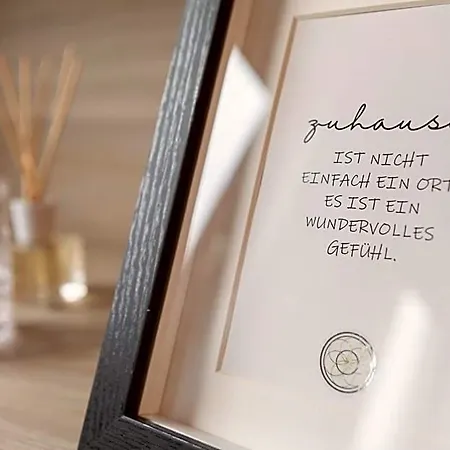 zuhaus
IST NICHT
EINFACH EIN ORT
ES IST EIN
WUNDERVOLLES
GEFÜHL.